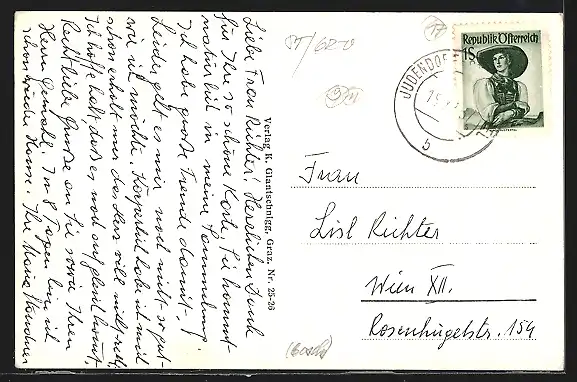 Liebe Frau Richter! Herzlichen Dank
für Ihre so schöne Karte. Sie kommt
natürlich in meine Sammlung.
Ich habe große Freude damit.
Leider geht es mir noch nicht so gut
wie ich möchte. Körperlich habe ich mich
schon erholt nur das Herz will nicht recht.
Ich hoffe halt daß es noch gut kommt.
Recht liebe Grüße an Sie sowie Ihren
Herrn Gemahl. In 8 Tagen bin ich
schon wieder Hause. Ihre Maria
Verlag K. Glantschnigg, Graz. Nr. 25-26
ST/620
Republik Österreich
1S
JUDENDORF
b
Frau
Lisl Richter
Wien XII.
Rosenhügelstr. 154